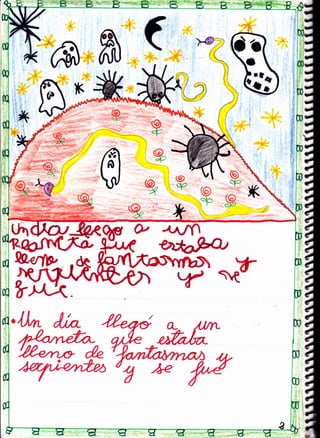 Un dia llego a un
planeta que estaba
lleno de fantasmas y
serpientes y se
fue.
•Un día llegó a un
planeta que estaba
lleno de fantasmas y
serpientes y se fue
2